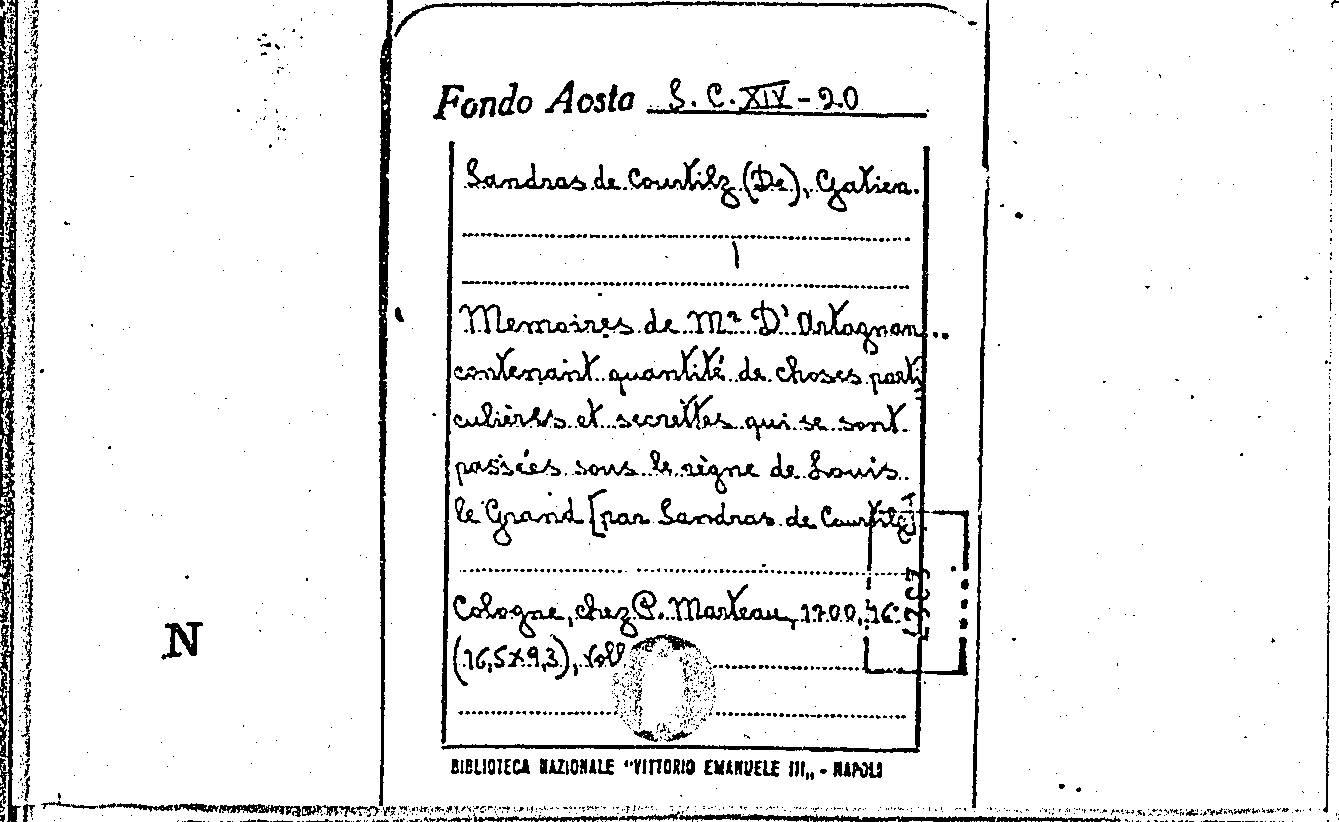 Fondo Aosta S. C. XIV - 20
Sandras de Courtilz (De), Gatien.
Memoires de Mr D'Artagnan...
contenant quantité de choses parti
culières et secrettes qui se sont
passées sous le règne de Louis
le Grand [par Sandras de Courtilz].
Cologne, chez P. Marteau, 1700, 16°
(16,5x9,3), voll
N
BIBLIOTECA NAZIONALE "VITTORIO EMANUELE III„ - NAPOLI